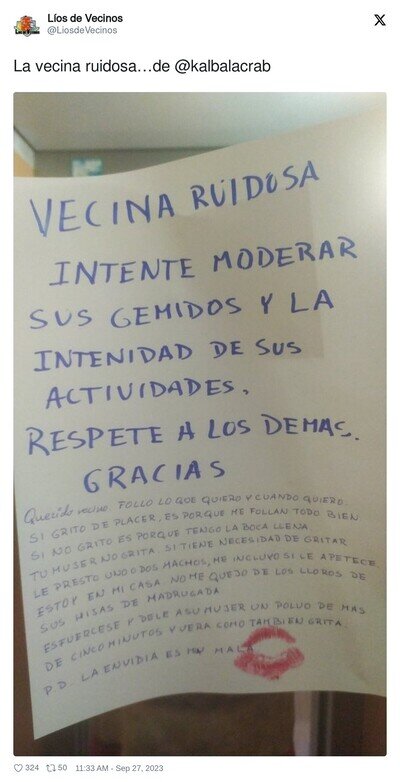 Líos de Vecinos
@LiosdeVecinos
La vecina ruidosa…de @kalbalacrab
VECINA RUIDOSA
INTENTE MODERAR
SUS GEMIDOS Y LA
INTENIDAD DE SUS
ACTIVIDADES.
RESPETE A LOS DEMAS.
GRACIAS
Querido vecino FOLLO LO QUE QUIERO Y CUANDO QUIERO.
SI GRITO DE PLACER, ES PORQUE ME FOLLAN TODO BIEN.
SI NO GRITO ES PORQUE TENGO LA BOCA LLENA.
TU MUJER NO GRITA. SI TIENE NECESIDAD DE GRITAR
LE PRESTO UNO O DOS MACHOS, ME INCLUYO SI LE APETECE.
ESTOY EN MI CASA. NO ME QUEJO DE LOS LLOROS DE
SUS HIJAS DE MADRUGADA
ESFUERCESE Y DELE A SU MUJER UN POLVO DE MAS
DE CINCO MINUTOS Y VERA COMO TAMBIEN GRITA.
P.D. LA ENVIDIA ES MUY MALA
324 50 11:33 AM - Sep 27, 2023